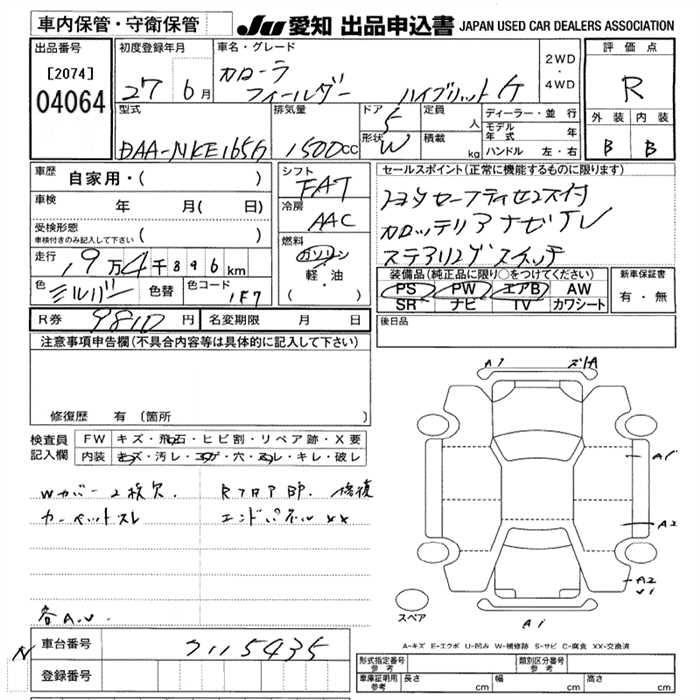 車内保管・守衛保管
JU 愛知 出品申込書 JAPAN USED CAR DEALERS ASSOCIATION
出品番号
[2074]
04064
初度登録年月
27 6月
車名・グレード
カローラ
フィールダー ハイブリット G
2WD
・
4WD
評価点
R
外装 内装
B B
型式
DAA-NKE165G
排気量
1500cc
ドア
5
形状
W
定員
人
積載
kg
ディーラー・並行
モデル年式 年
ハンドル 左・右
車歴
自家用・( )
車検
年 月( 日)
受検形態
車検付きのみ記入して下さい ( )
走行
19万4千896km
色
シルバー
色替
色コード
1F7
シフト
FAT
冷房
AAC
燃料
ガソリン
軽・油
( ・ )
セールスポイント(正常に機能するものに限ります)
トヨタセーフティセンス付
ステアリングスイッチ
装備品(純正品に限り○をつけてください)
PS PW エアB AW
SR ナビ TV カワシート
新車保証書
有・無
R券 9810円
名変期限 月 日
後日品
注意事項申告欄(不具合内容等は具体的に記入して下さい)
修復歴 有 〔箇所 〕
検査員
記入欄
FW キズ・飛石・ヒビ割・リペア跡・X要
内装 キズ・汚レ・コゲ・穴・スレ・キレ・破レ
Wカバー2枚欠. Rフロア部. 修復
カーペットスレ エンドパネルXX
各A.U.
A1
A1
A2
A2
U1
A1
スペア
A-キズ E-エクボ U-凹み W-補修跡 S-サビ C-腐食 XX-交換済
N
車台番号
7115435
登録番号
形式指定番号
参考
類別区分番号
参考
車庫証明用
参考
長さ cm 幅 cm 高さ cm